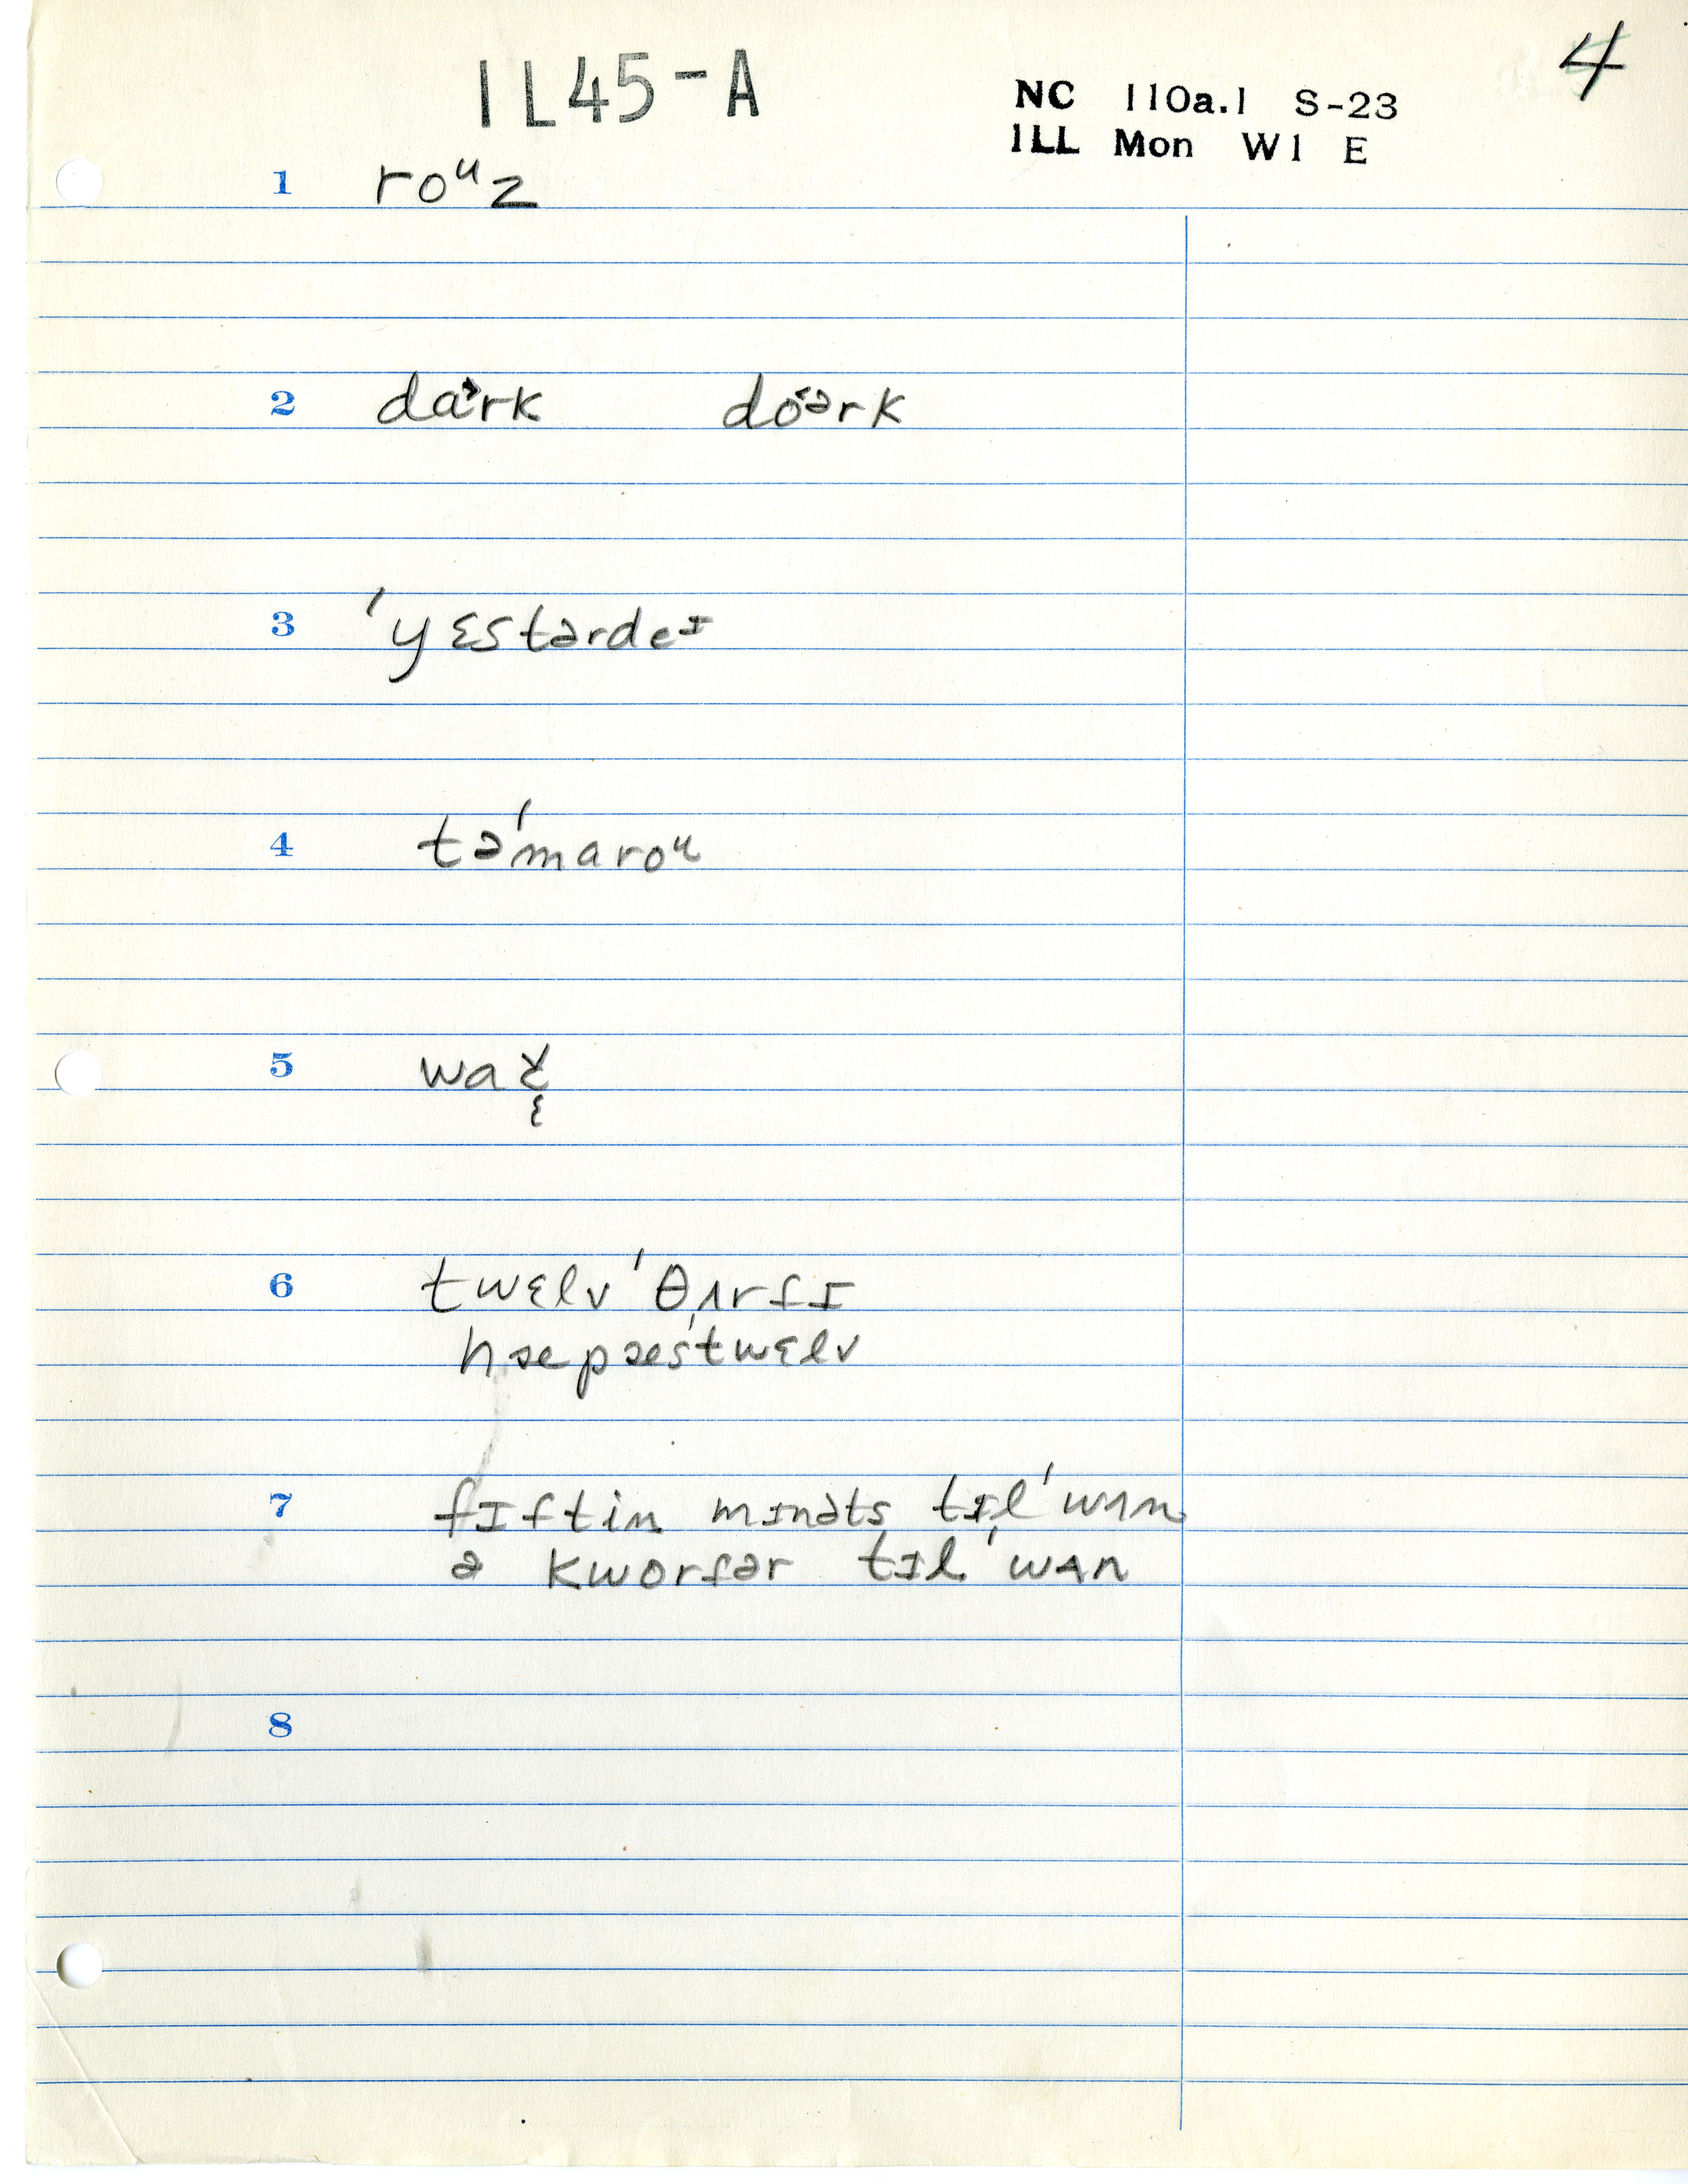 4
IL45-A
NC 110a.1 S-23
ILL Mon W1 E
1 roᵘz
2 daᵊrk dɒ˂ᵊrk
3 ˈyɛstərdeᶦ
4 təˈmaroᵘ
5
6 twɛlv ˈθɜrɾɪ
hæpæsˈtwɛlv
7 fɪftin mɪnəts tɪlˈwʌn
ə kwɔrɾər tɪlˈwʌn
8